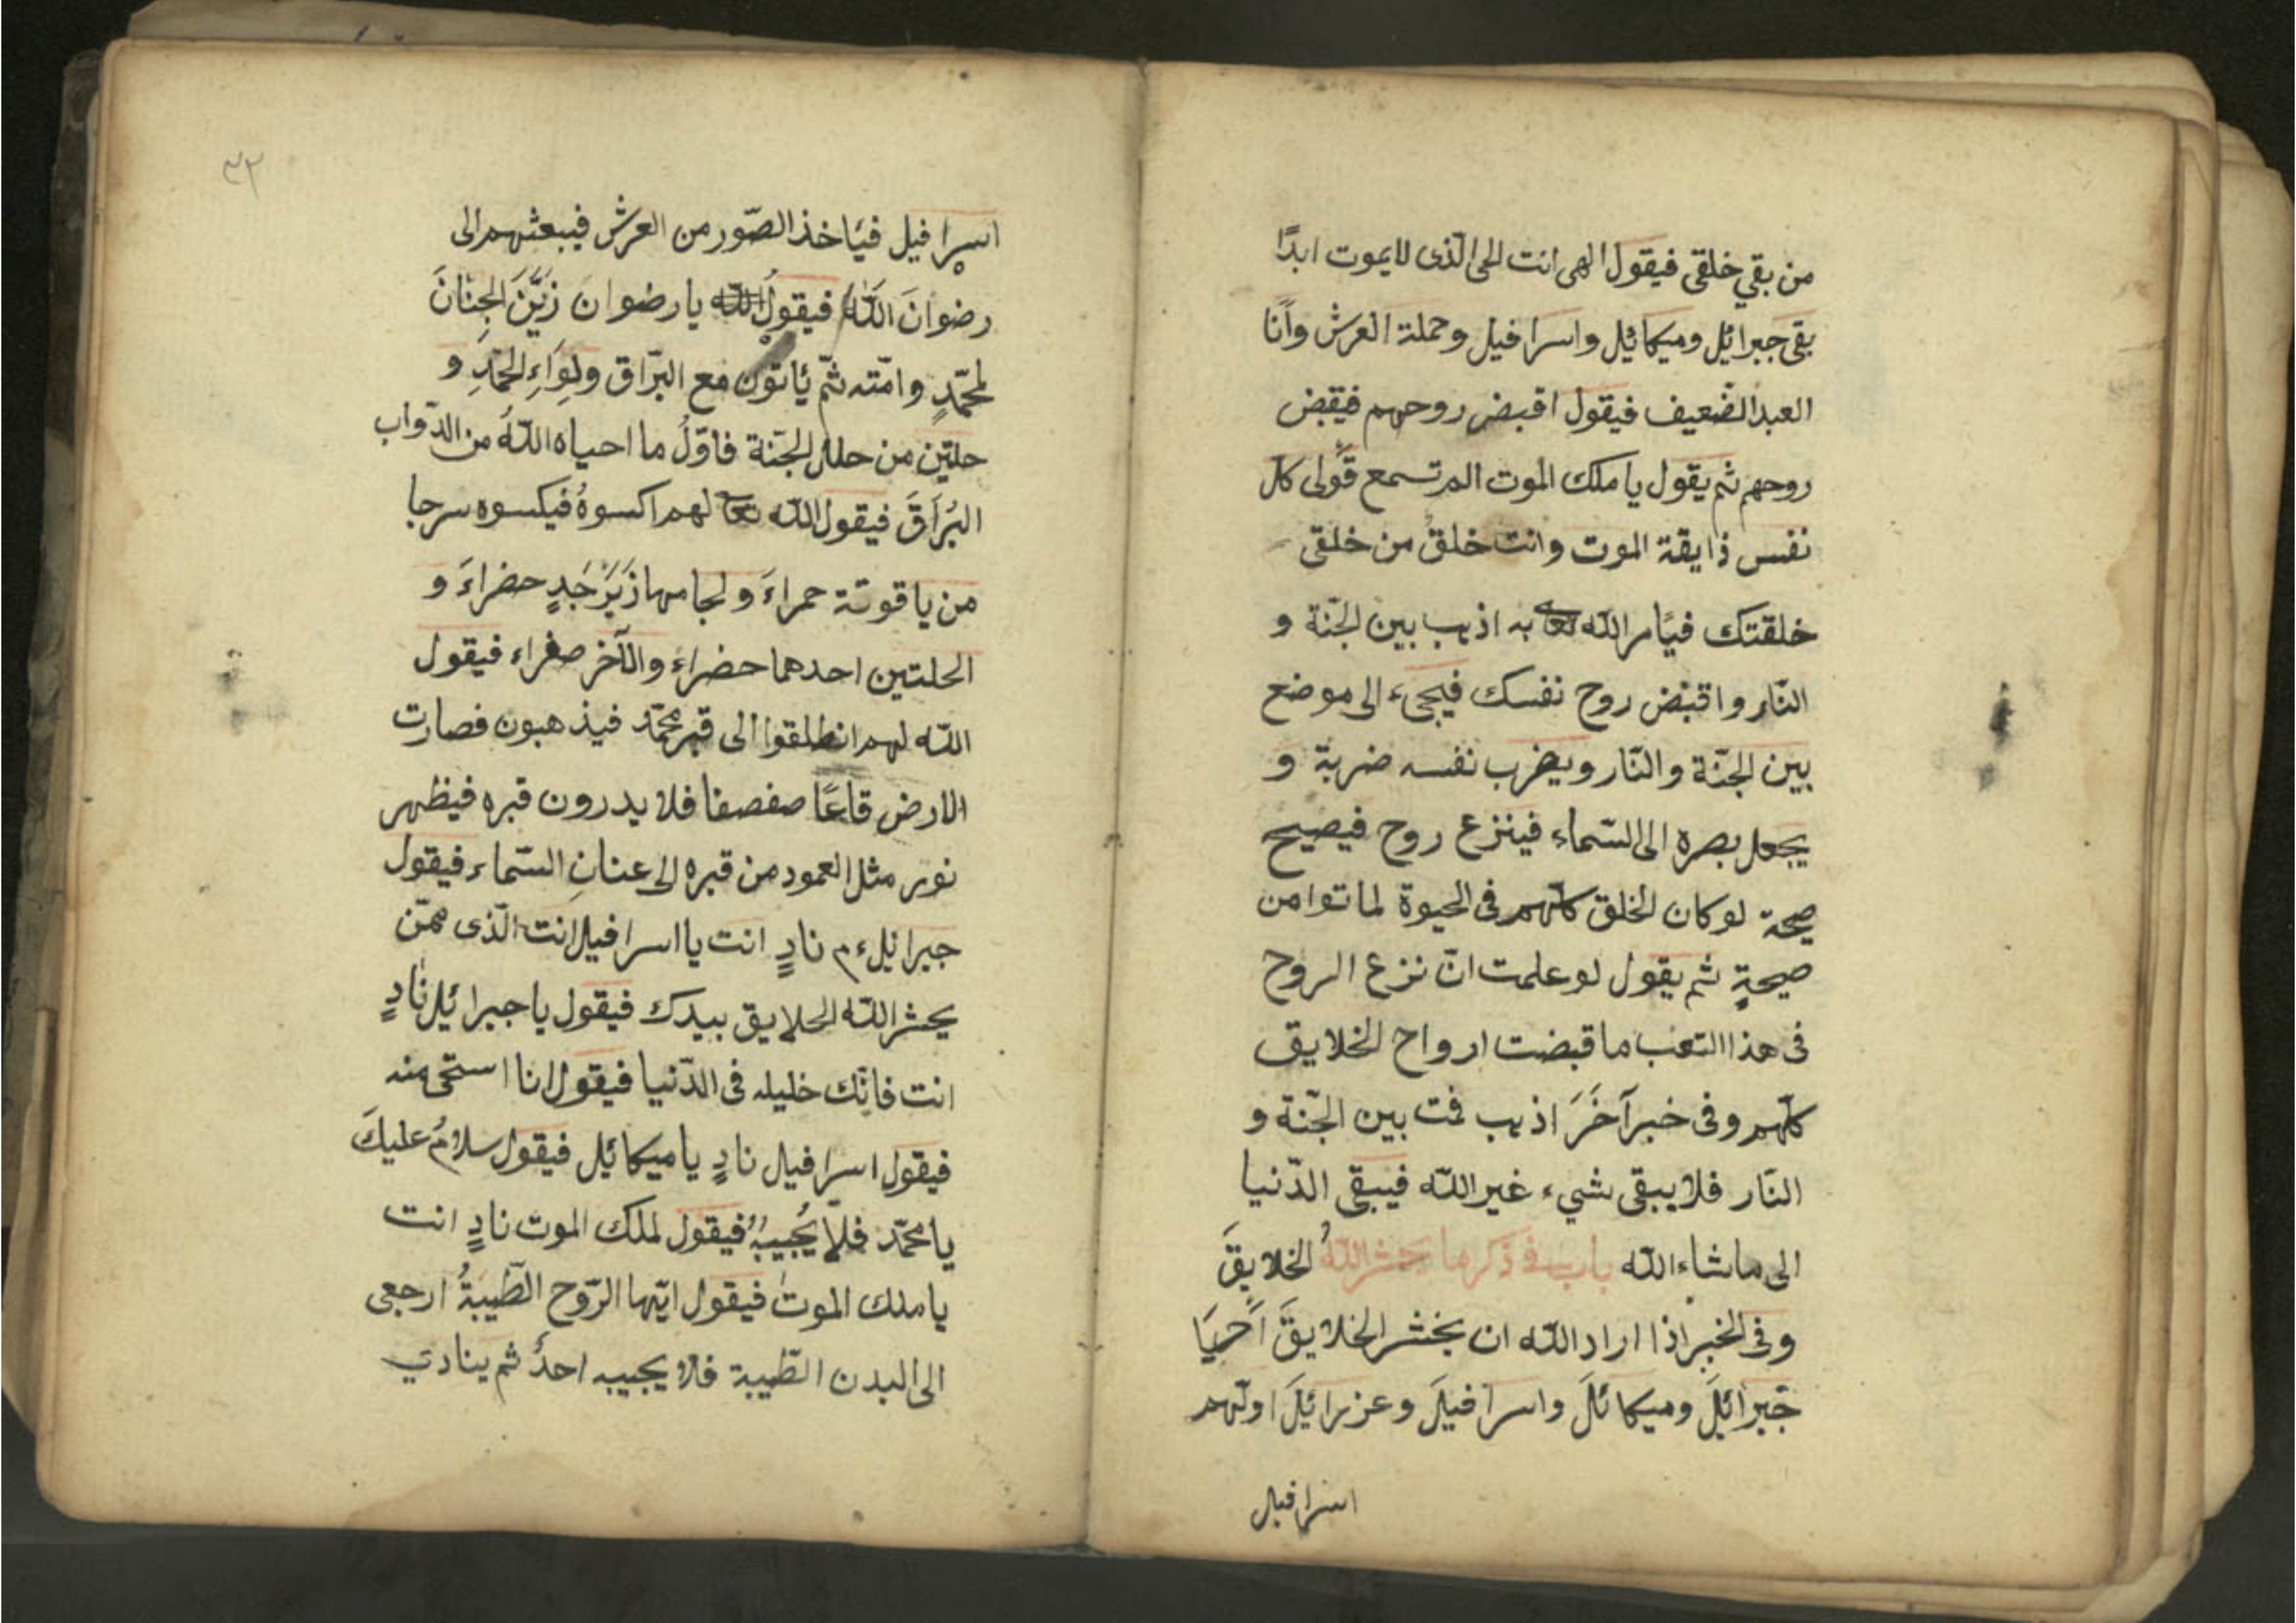 من بقي خلقى فيقول الهى انت الحى الذى لايموت ابدًا
بقى جبرائيل وميكائيل واسرافيل وحملة العرش وأنا
العبد الضعيف فيقول اقبض روحهم فيقبض
روحهم ثم يقول يا ملك الموت الم تسمع قولى كل
نفس ذايقة الموت وانت خلق من خلقى
خلقتك فيأمر الله تعا به اذهب بين الجنة و
النار واقبض روح نفسك فيجىء الى موضع
بين الجنّة والنّار ويضرب نفسه ضربة و
يجعل بصره الى السّماء فينزع روح فيصيح
صيحة لوكان الخلق كلّهم فى الحيوة لماتوا من
صيحةٍ ثم يقول لو علمت انّ نزع الروح
فى هذا التعب ما قبضت ارواح الخلايق
كلّهم وفى خبر آخَرَ اذهب فمت بين الجنّة و
النّار فلا يبقى شيء غير الله فيبقى الدّنيا
الى ماشاء الله باب فى ذكر ما يحشر اللهُ الخلايقَ
وفى الخبر اذا اراد الله ان يخشر الخلايقَ اَحْيَا
جَبرائيلَ وميكائلَ واسرافيلَ وعزرائيلَ اولهم
اسرافيل
٣٢
اسرافيل فيَاخذ الصّور من العرش فيبعثهم الى
رضوانَ اللّه فيقولُ الله يا رضوان زَيِّنَ الجِنَانَ
لمحمّدٍ وامّته ثمّ يَاتون مع البرّاق ولِوَاءِ الحَمْدِ و
حلتين من حلل الجنّة فاوّلُ ما احياه اللّهُ من الدّواب
البُرَاقَ فيقول الله تعا لهم اكسوهُ فيكسوه سرجا
من ياقوتة حمراءَ ولجامها زَبَرْجَدٍ حضراءَ و
الحلتين احدهما حضراء والآخر صفراء فيقول
الله لهم انطلقوا الى قبر محمّد فيذهبون فصارت
الارض قاعًا صفصفا فلا يدرون قبره فيظهر
نور مثل العمود من قبره الى عنانِ السّماء فيقول
جبرائيل ءم نادٍ انت يا اسرافيل انت الّذى ممّن
يحشر الله الخلايق بيدك فيقول يا جبرائيل نادٍ
انت فانّك خليله فى الدّنيا فيقول انا استحى منه
فيقول اسرافيل نادٍ يا ميكائيل فيقول سلامٌ عليكَ
يا محمّد فلا يُجيبُهُ فيقول لملك الموت نادٍ انت
يا ملك الموت فيقول ايّها الرّوح الطّيبةُ ارجعى
الى البدن الطّيبة فلا يجيبه احدٌ ثم ينادي